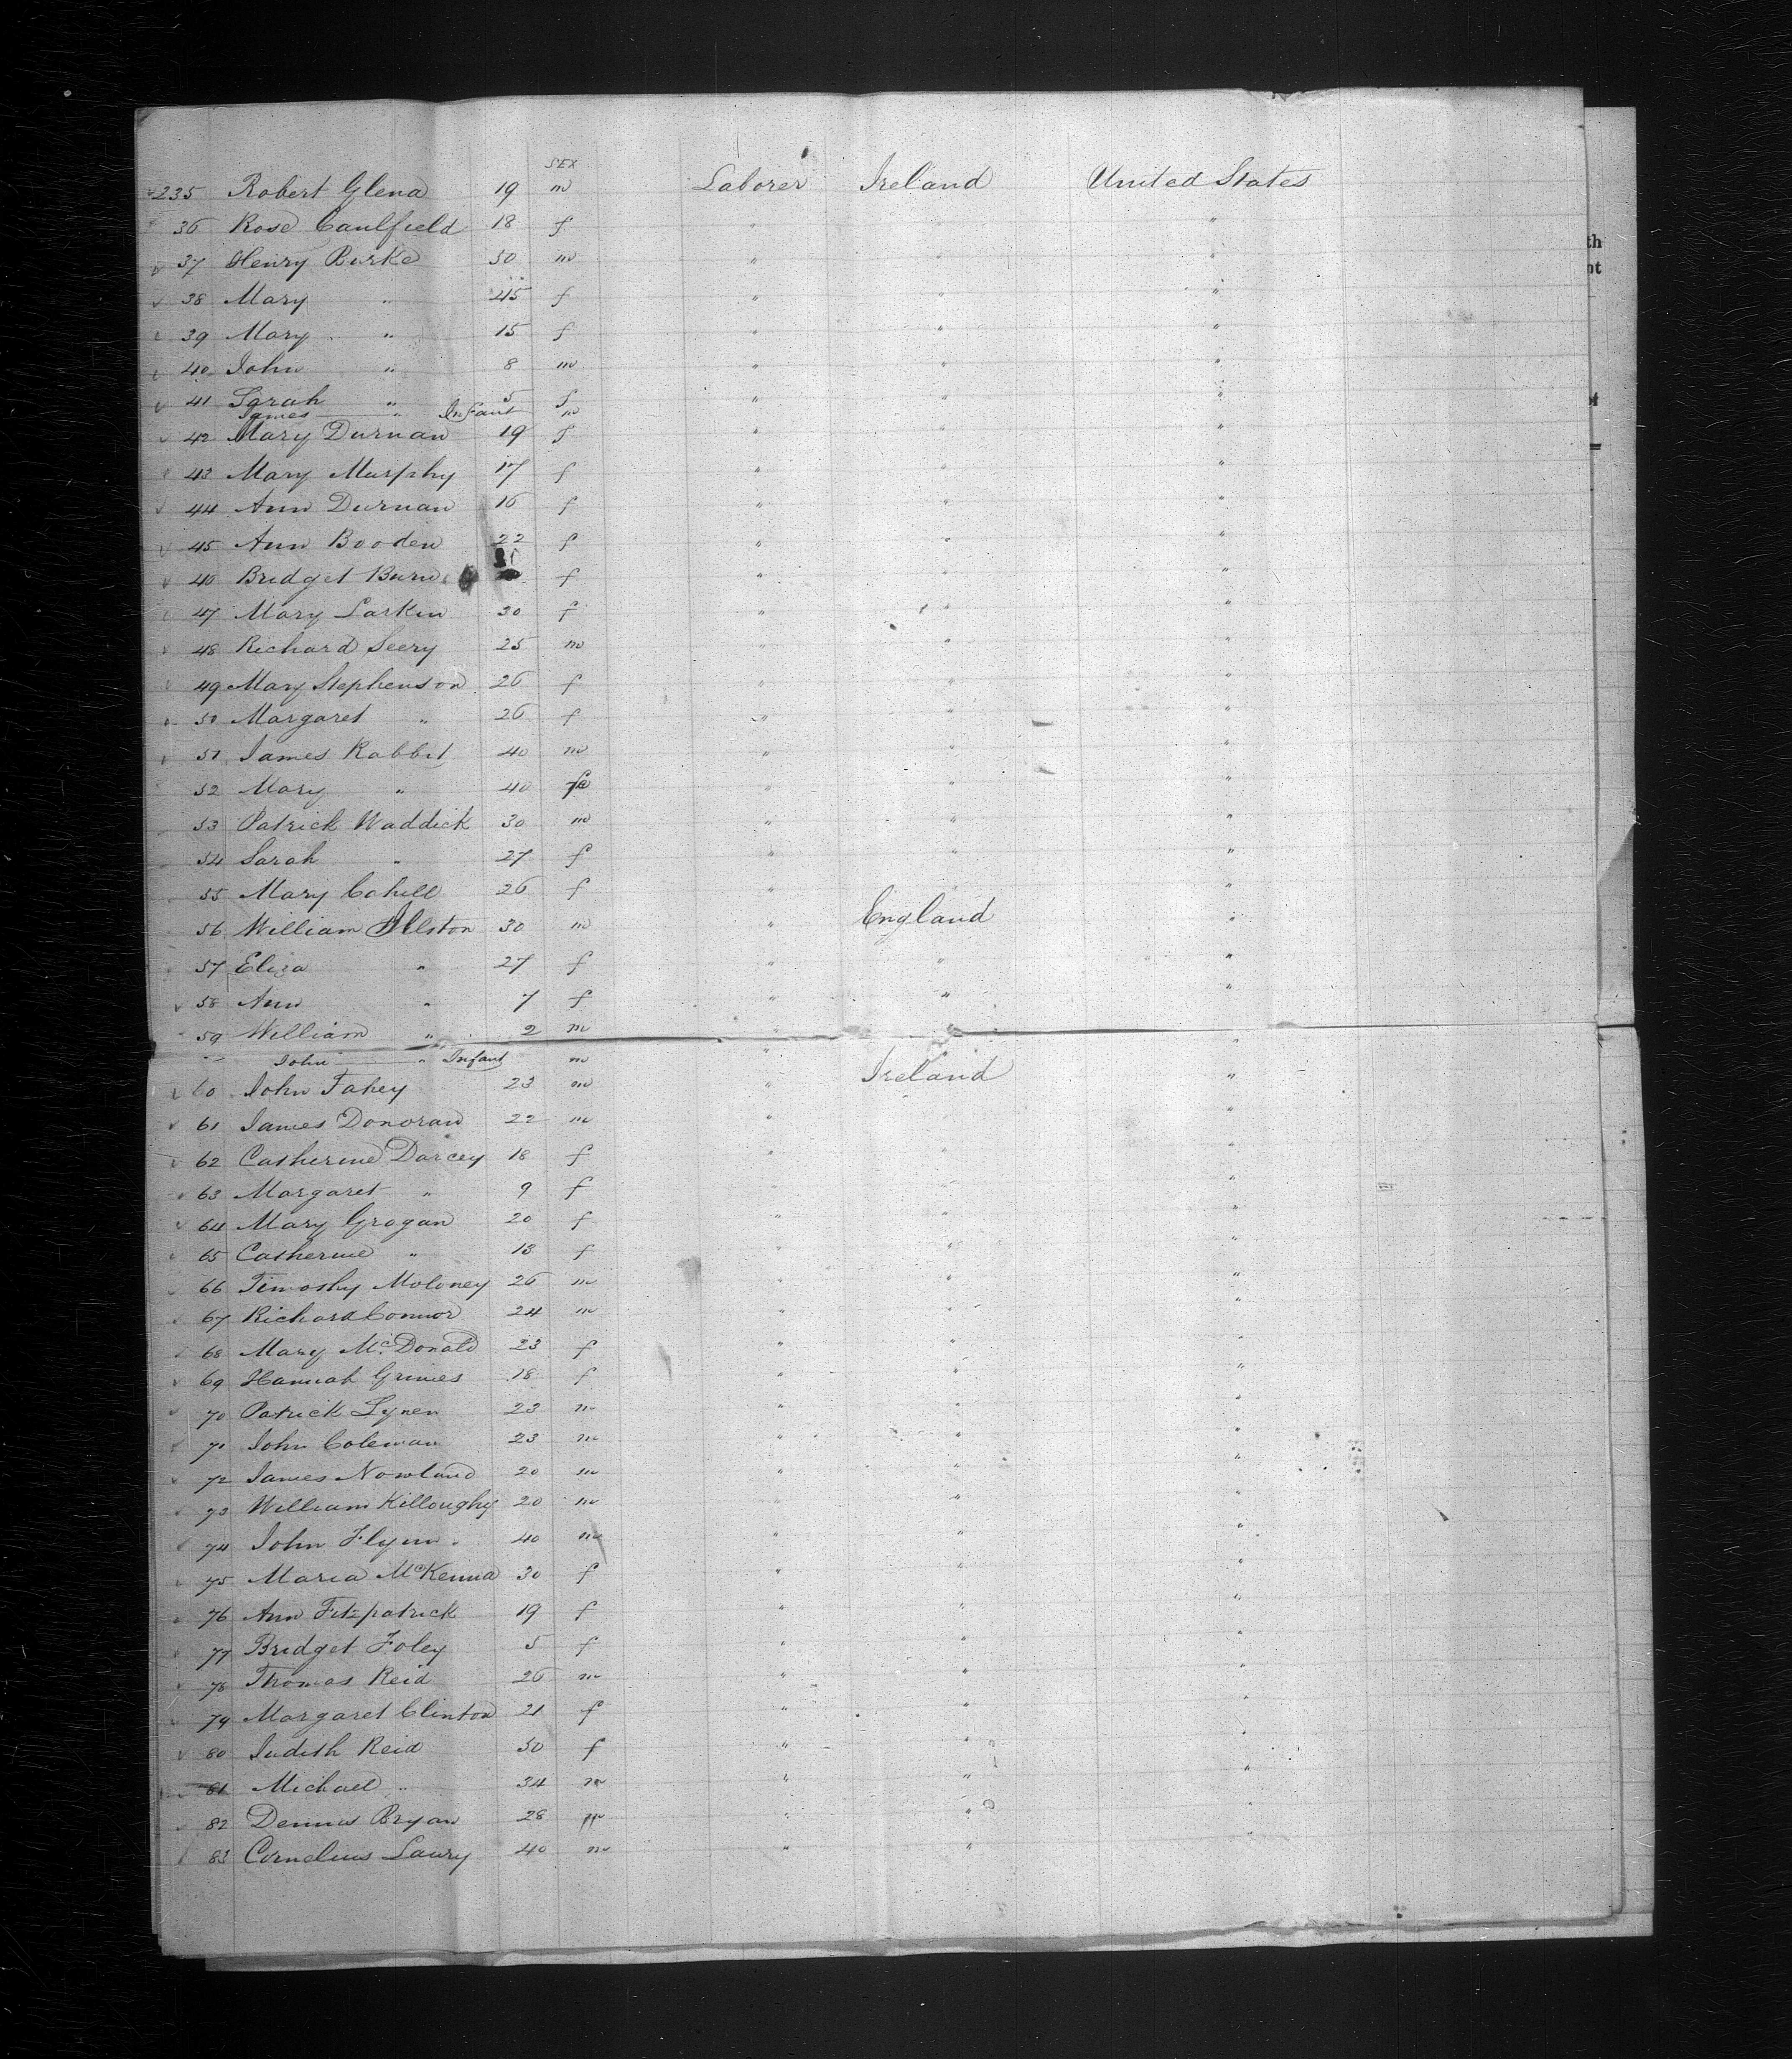 SEX
235 Robert Glena 19 m Laborer Ireland United States
36 Rose Caulfield 18 f " " "
37 Henry Burke 50 m " " "
38 Mary " 45 f " " "
39 Mary " 15 f " " "
40 John " 8 m " " "
41 Sarah " 5 f " " "
James " Infant m
42 Mary Durnan 19 f " " "
43 Mary Murphy 17 f " " "
44 Ann Durnan 16 f " " "
45 Ann Booden 22 f " " "
46 Bridget Burn f " " "
47 Mary Larkin 30 f " " "
48 Richard Seery 25 m " " "
49 Mary Stephenson 26 f " " "
50 Margaret " 26 f " " "
51 James Rabbit 40 m " " "
52 Mary " 40 f " " "
53 Patrick Waddick 30 m " " "
54 Sarah " 27 f " " "
55 Mary Cahill 26 f " " "
56 William Illston 30 m " England "
57 Eliza " 27 f " " "
58 Ann " 7 f " " "
59 William " 2 m " " "
John " Infant m " "
60 John Fahey 23 m " Ireland "
61 James Donovan 22 m " " "
62 Catherine Darcey 18 f " " "
63 Margaret " 9 f " " "
64 Mary Grogan 20 f " " "
65 Catherine " 13 f " " "
66 Timothy Moloney 26 m " " "
67 Richard Connor 24 m " " "
68 Mary McDonald 23 f " " "
69 Hannah Grimes 18 f " " "
70 Patrick Lynen 23 m " " "
71 John Coleman 23 m " " "
72 James Nowland 20 m " " "
73 William Killoughy 20 m " " "
74 John Flynn 40 m " " "
75 Maria McKenna 30 f " " "
76 Ann Fitzpatrick 19 f " " "
77 Bridget Foley 5 f " " "
78 Thomas Reid 26 m " " "
79 Margaret Clinton 21 f " " "
80 Judith Reid 50 f " " "
81 Michael " 34 m " " "
82 Dennis Bryan 28 m " " "
83 Cornelius Laury 40 m " " "